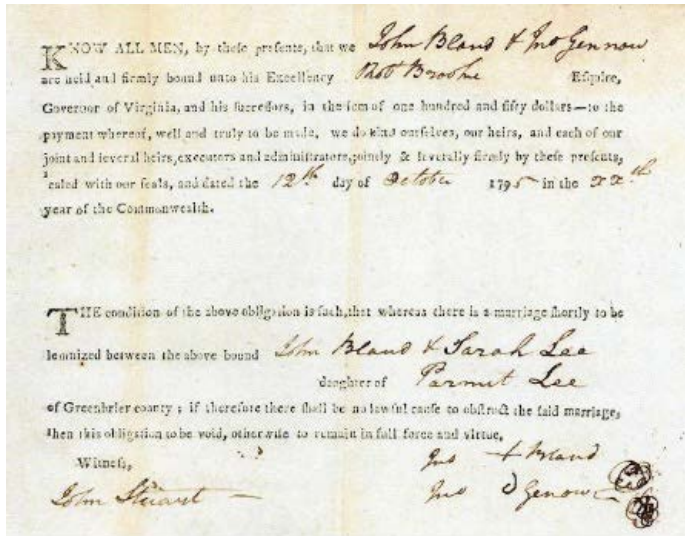 KNOW ALL MEN, by theſe preſents, that we John Bland & Jno Gennow
are held and firmly bound unto his Excellency Robt Brooke Eſquire,
Governor of Virginia, and his ſucceſſors, in the ſum of one hundred and fifty dollars—to the
payment whereof, well and truly to be made, we do bind ourſelves, our heirs, and each of our
joint and ſeveral heirs, executors and adminiſtrators, jointly & ſeverally firmly by theſe preſents,
ſealed with our ſeals, and dated the 12th day of October 1795 in the xxth
year of the Commonwealth.
THE condition of the above obligation is ſuch, that whereas there is a marriage ſhortly to be
ſolemnized between the above bound John Bland & Sarah Lee
daughter of Parmit Lee
of Greenbrier county; if therefore there ſhall be no lawful cauſe to obſtruct the ſaid marriage,
then this obligation to be void, otherwiſe to remain in full force and virtue.
Witneſs,
Jno + Bland
John Stuart —
Jno Genow